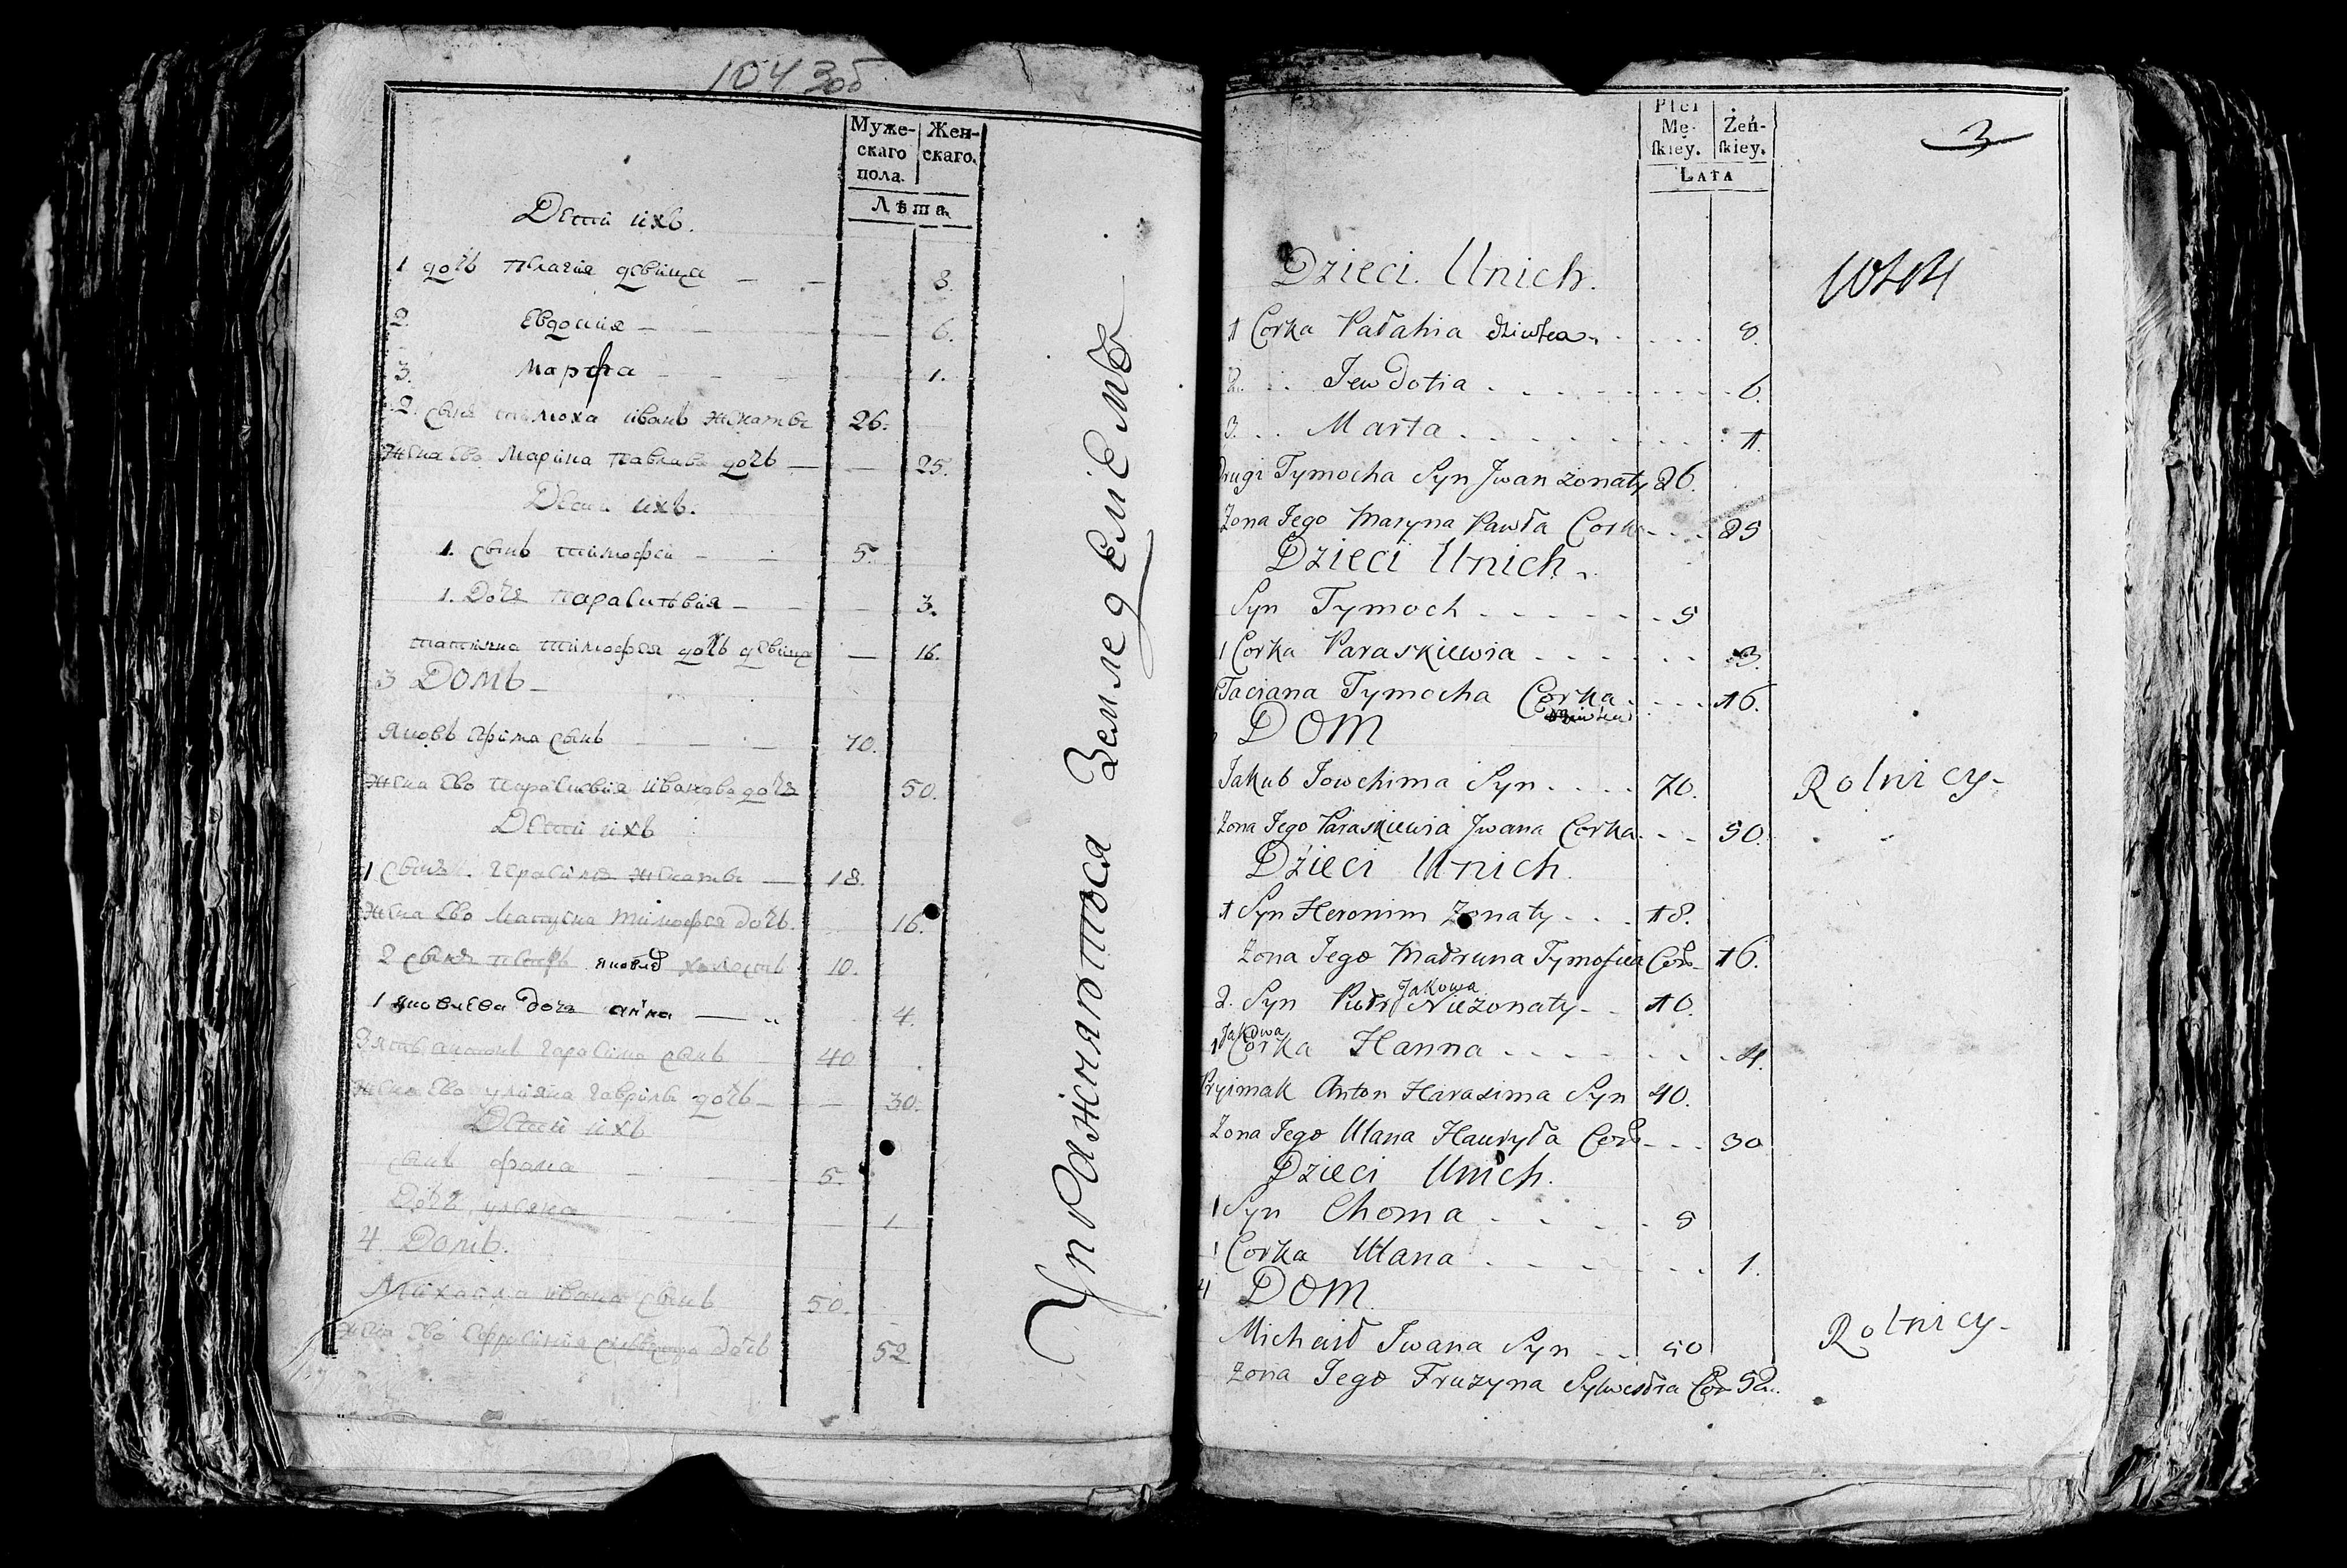 1043об
Муже- Жен-
скаго скаго.
пола.
Лѣта
Дети ихъ.
1 дочь Пелагия девица — — 8.
2. Евдокия — — — 6.
3. Марфа — — — 1.
2. сынъ Тимоха Иванъ женатъ 26.
Жена ево Марина Павлова дочь — — 25.
Дети ихъ.
1. сынъ Тимофей — — 5.
1. Дочь Парасковия — — — 3.
Татияна Тимофея дочь девица — 16.
3 Домъ —
Яковъ Ефима сынъ — — — 70.
Жена ево Парасковия Иванова дочь 50.
Дети ихъ
1 сынъ Герасимъ женатъ — 18.
Жена ево Матруна Тимофея дочь. 16.
2 сынъ Петръ Яковлев холостъ 10.
1 Яковлева дочь Анна — 4.
Зять Антонъ Гарасима сынъ 40
Жена ево Улияна Гаврила дочь — — 30.
Дети ихъ
сынъ Фома — 5.
Дочь Уляна — 1
4. Домъ.
Михайла Ивана сынъ 50.
Жена ево Ефросиния Сильвестра дочь 52
Упражняются Земледелиемъ
Płci
Mę- Żeń-
ſkiey. ſkiey.
LATA
3
1044
Dzieci Unich.
1 Corka Pałahia dziewka . . . . 8.
2. . . Jewdotia . . . . . . 6.
3. . . Marta . . . . . . 1.
Drugi Tymocha Syn Jwan żonaty 26.
Żona Jego Maryna Pawła Corka - - . 25
Dzieci Unich.
Syn Tymoch - - - - - - 5
1 Corka Paraskiewia . . - . . . 3.
Taciana Tymocha Corka . . . . 16.
dziewka
DOM
Jakub Jowchima Syn . . . . 70. Rolnicy -
Żona Jego Paraskiewia Jwana Corka. - - 50.
Dzieci Unich.
1 Syn Heronim Żonaty - . . 18.
Żona Jego Madruna Tymofieia Cor 16.
2. Syn Piotr Jakowa Nieżonaty - . 10.
1 Jakowa Corka Hanna . . . - . . . 4.
Pryimak Anton Harasima Syn 40.
Żona Jego Ulana Hawryła Cor - - . 30
Dzieci Unich.
1 Syn Choma . . . . . 5
1 Corka Ulana . . . - . . . 1.
4 DOM
Michaił Iwana Syn - . 50 Rolnicy -
Żona Jego Fruzyna Sylwestra Cor 52.